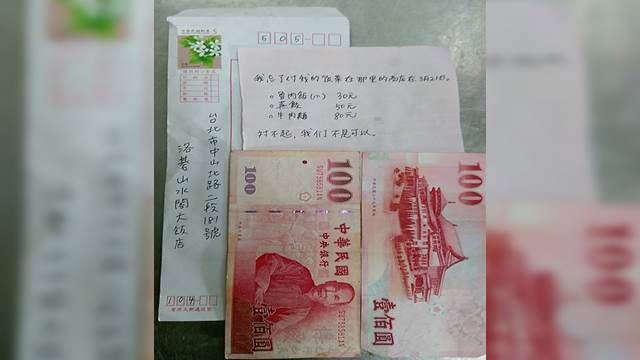 505-
我忘了付我的饭菜在那里的商店在3月21日。
○魯肉飯(小) 30元
○蒸餃 50元
○牛肉麵 80元
对不起,我们不是可以。
台北市中山北路二段181號
洛碁山水閣大飯店
104
100
100
中華民國
中央銀行
100
壹佰圓
壹佰圓